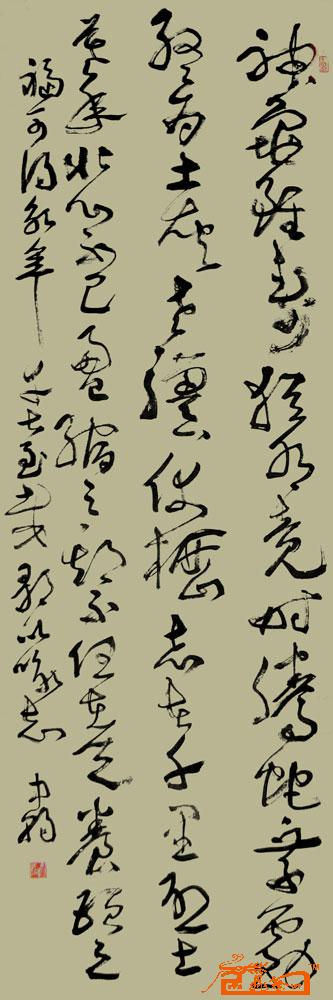 神龜雖壽猶有竟時騰蛇乘霧
終為土灰老驥伏櫪志在千里烈士
暮年壯心不已盈縮之期不但在天養頤之
福可得永年 幸甚至哉歌以咏志